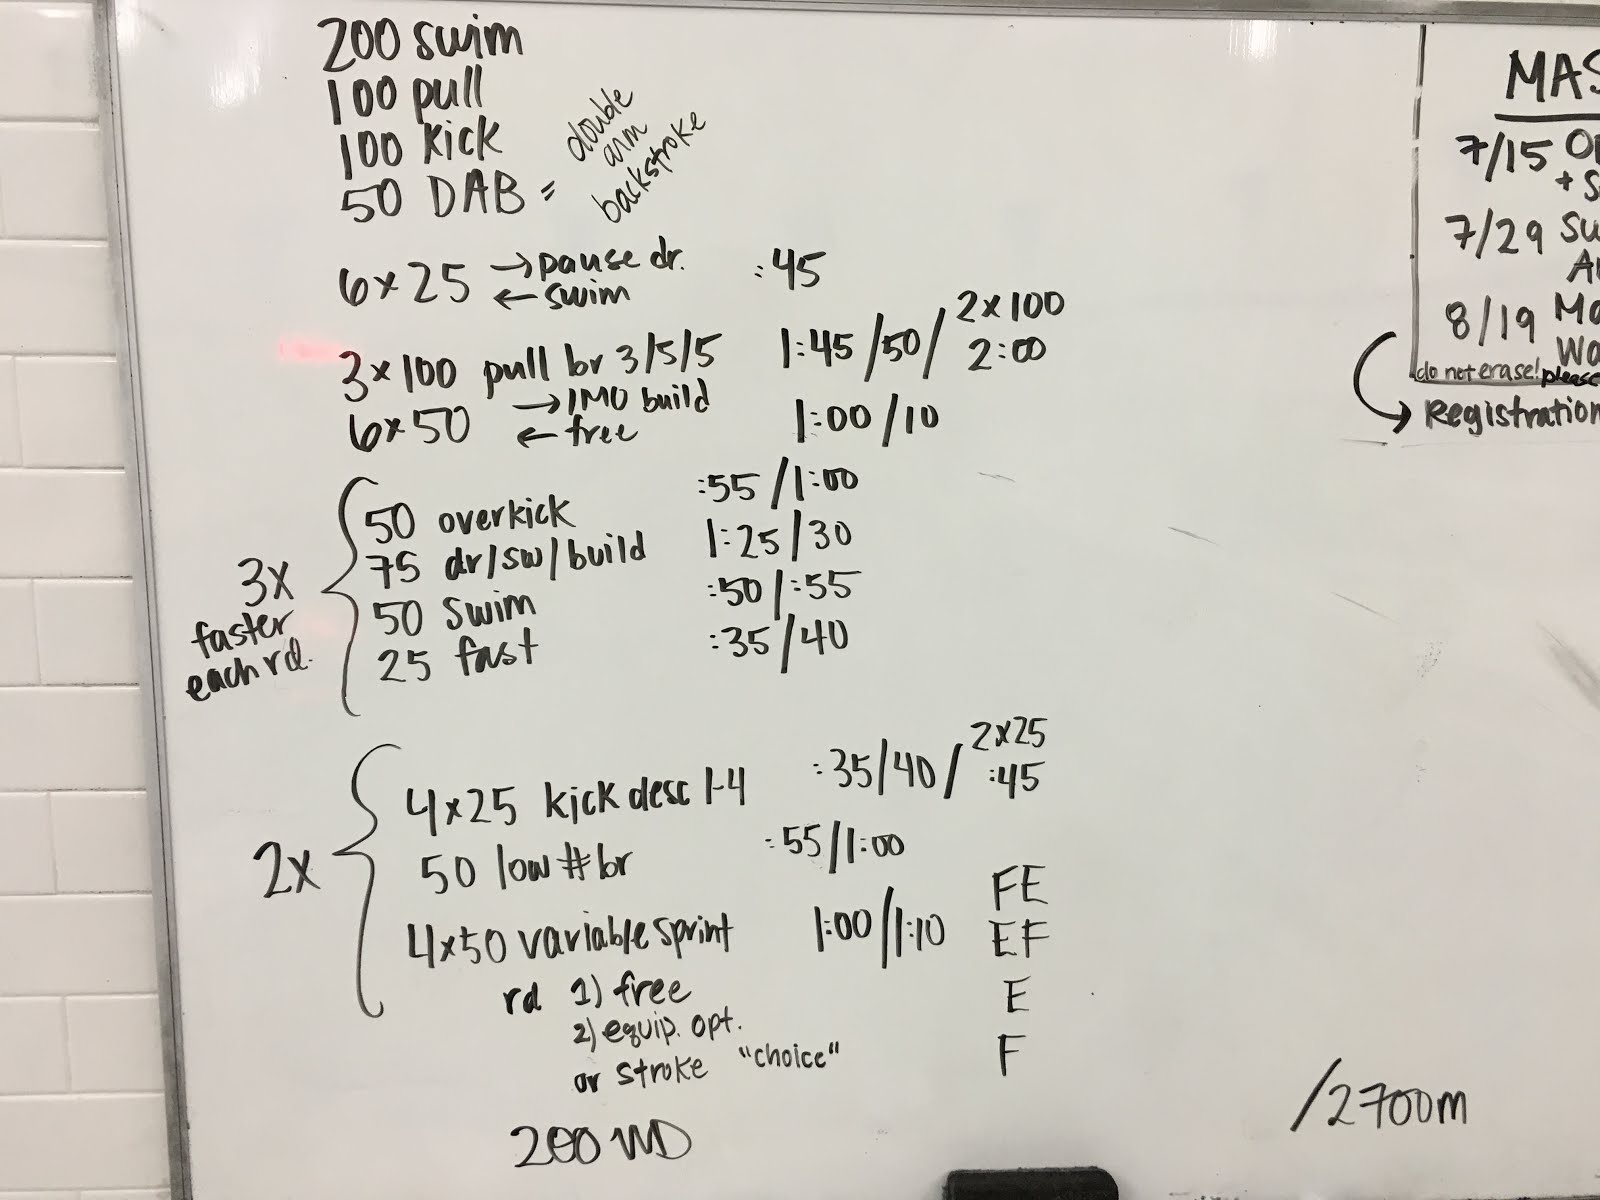 200 swim
100 pull
100 kick
50 DAB = double arm backstroke
6x25 →pause dr. :45
←swim
3x100 pull br 3/5/5 1:45/50/ 2x100 2:00
6x50 →IMO build 1:00/10
←free
3x faster each rd.
50 overkick :55/1:00
75 dr/sw/build 1:25/30
50 swim :50/:55
25 fast :35/40
2x
4x25 kick desc 1-4 :35/40/ 2x25 :45
50 low # br :55/1:00
4x50 variable sprint 1:00/1:10
FE
EF
E
F
rd 1) free
2) equip. opt.
or stroke "choice"
200 WD
/2700m
7/15
+
7/29
8/19
do not erase! please
Registration